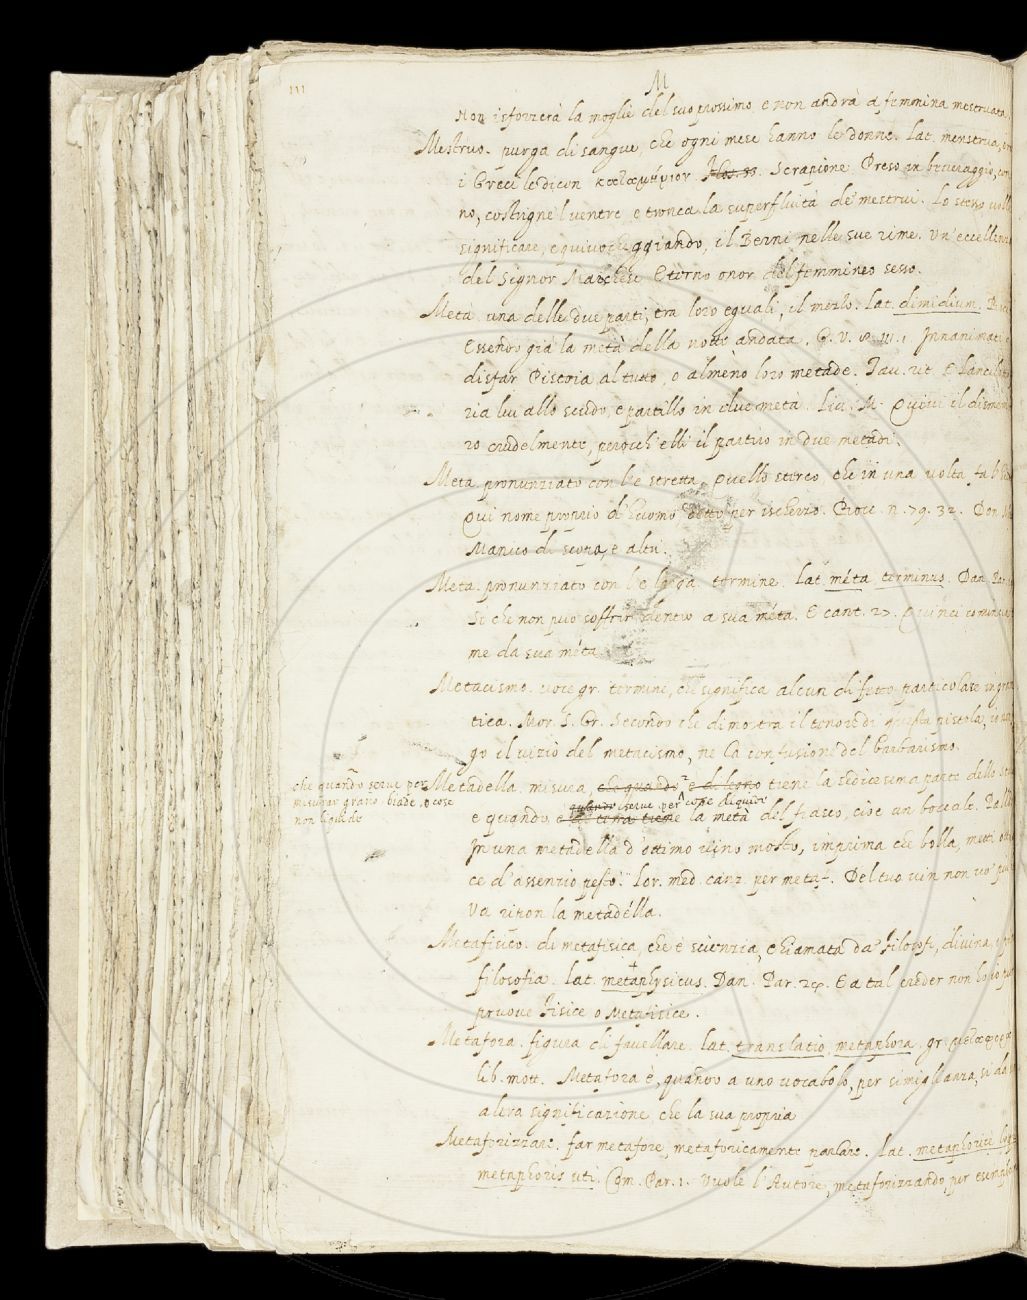 111
M
Non isforzerà la moglie del suo prossimo e non andrà a femmina mestruata
Mestruo. purga di sangue, che ogni mese hanno le donne. Lat. menstrua,
i Greci le dicon καταμήνιον. Serapione Preso in beveraggio, con
no, costrigne l ventre e tronca la superfluità de mestrui. Lo stesso
significare, equivocheggiando, il Berni nelle sue rime. Un' eccellenza
del Signor Marchese Eterno onor del femmineo sesso.
Metà. una delle due parti, tra loro eguali, il mezzo. Lat. dimidium.
Essendo già la metà della notte andata. G. V. Innanimati
disfar Pistoia al tutto, o almeno loro metade. Tav. rit. E Lancil
ria lui allo scudo, e partillo in due metà. Liv. M. Quivi il
ro crudelmente, perocch' elli il partiro in due metadi.
Meta. pronunziato con l'e stretta. quello sterco che in una volta fa
Qui nome proprio d' huomo detto per ischerzo. Bocc. n. 79. 32. Don
Manico di scopa, e altri.
Meta. pronunziato con l'e larga. termine. Lat. méta terminus. Dan.
Si che non può soffrir dentro a sua méta. E cant. 27. Quinci
me da sua méta
Metacismo. voce gr. termine, che significa alcun difetto particolare in
tica. Mor. S. Gr. Secondo che dimostra il tenore di questa pistola,
go il vizio del metacismo, ne la confusione del barbarismo.
che quando serve per
misurar grano biade, o cose
non liquide
Metadella. misura, che quando è di legno tiene la sedicesima parte dello
quando serve per cose liquide
e quando è di terra tiene la metà del fiasco, cioè un boccale.
In una metadella d' ottimo vino mosto, imprima che bolla, metti
ce d' assenzio pesto. Lor. med. canz. per metaf. Del tuo vin non vo'
Va ripon la metadella.
Metafisico. di metafisica, che è scienzia, chiamata da' Filosofi, divina,
filosofia. Lat. metaphysicus. Dan. Par. 24. E a tal creder non ho io pur
pruove Fisice o Metafisice.
Metafora. figura di favellare. Lat. translatio, metaphora. gr.
lib. mott. Metafora è, quando a uno vocabolo, per simiglianza, si dà
altra significazione che la sua propria
Metaforizzare. far metafore, metaforicamente parlare. Lat. metaphoricè
metaphoris uti. Com. Par. 1. Vuole l' Autore, metaforizzando per